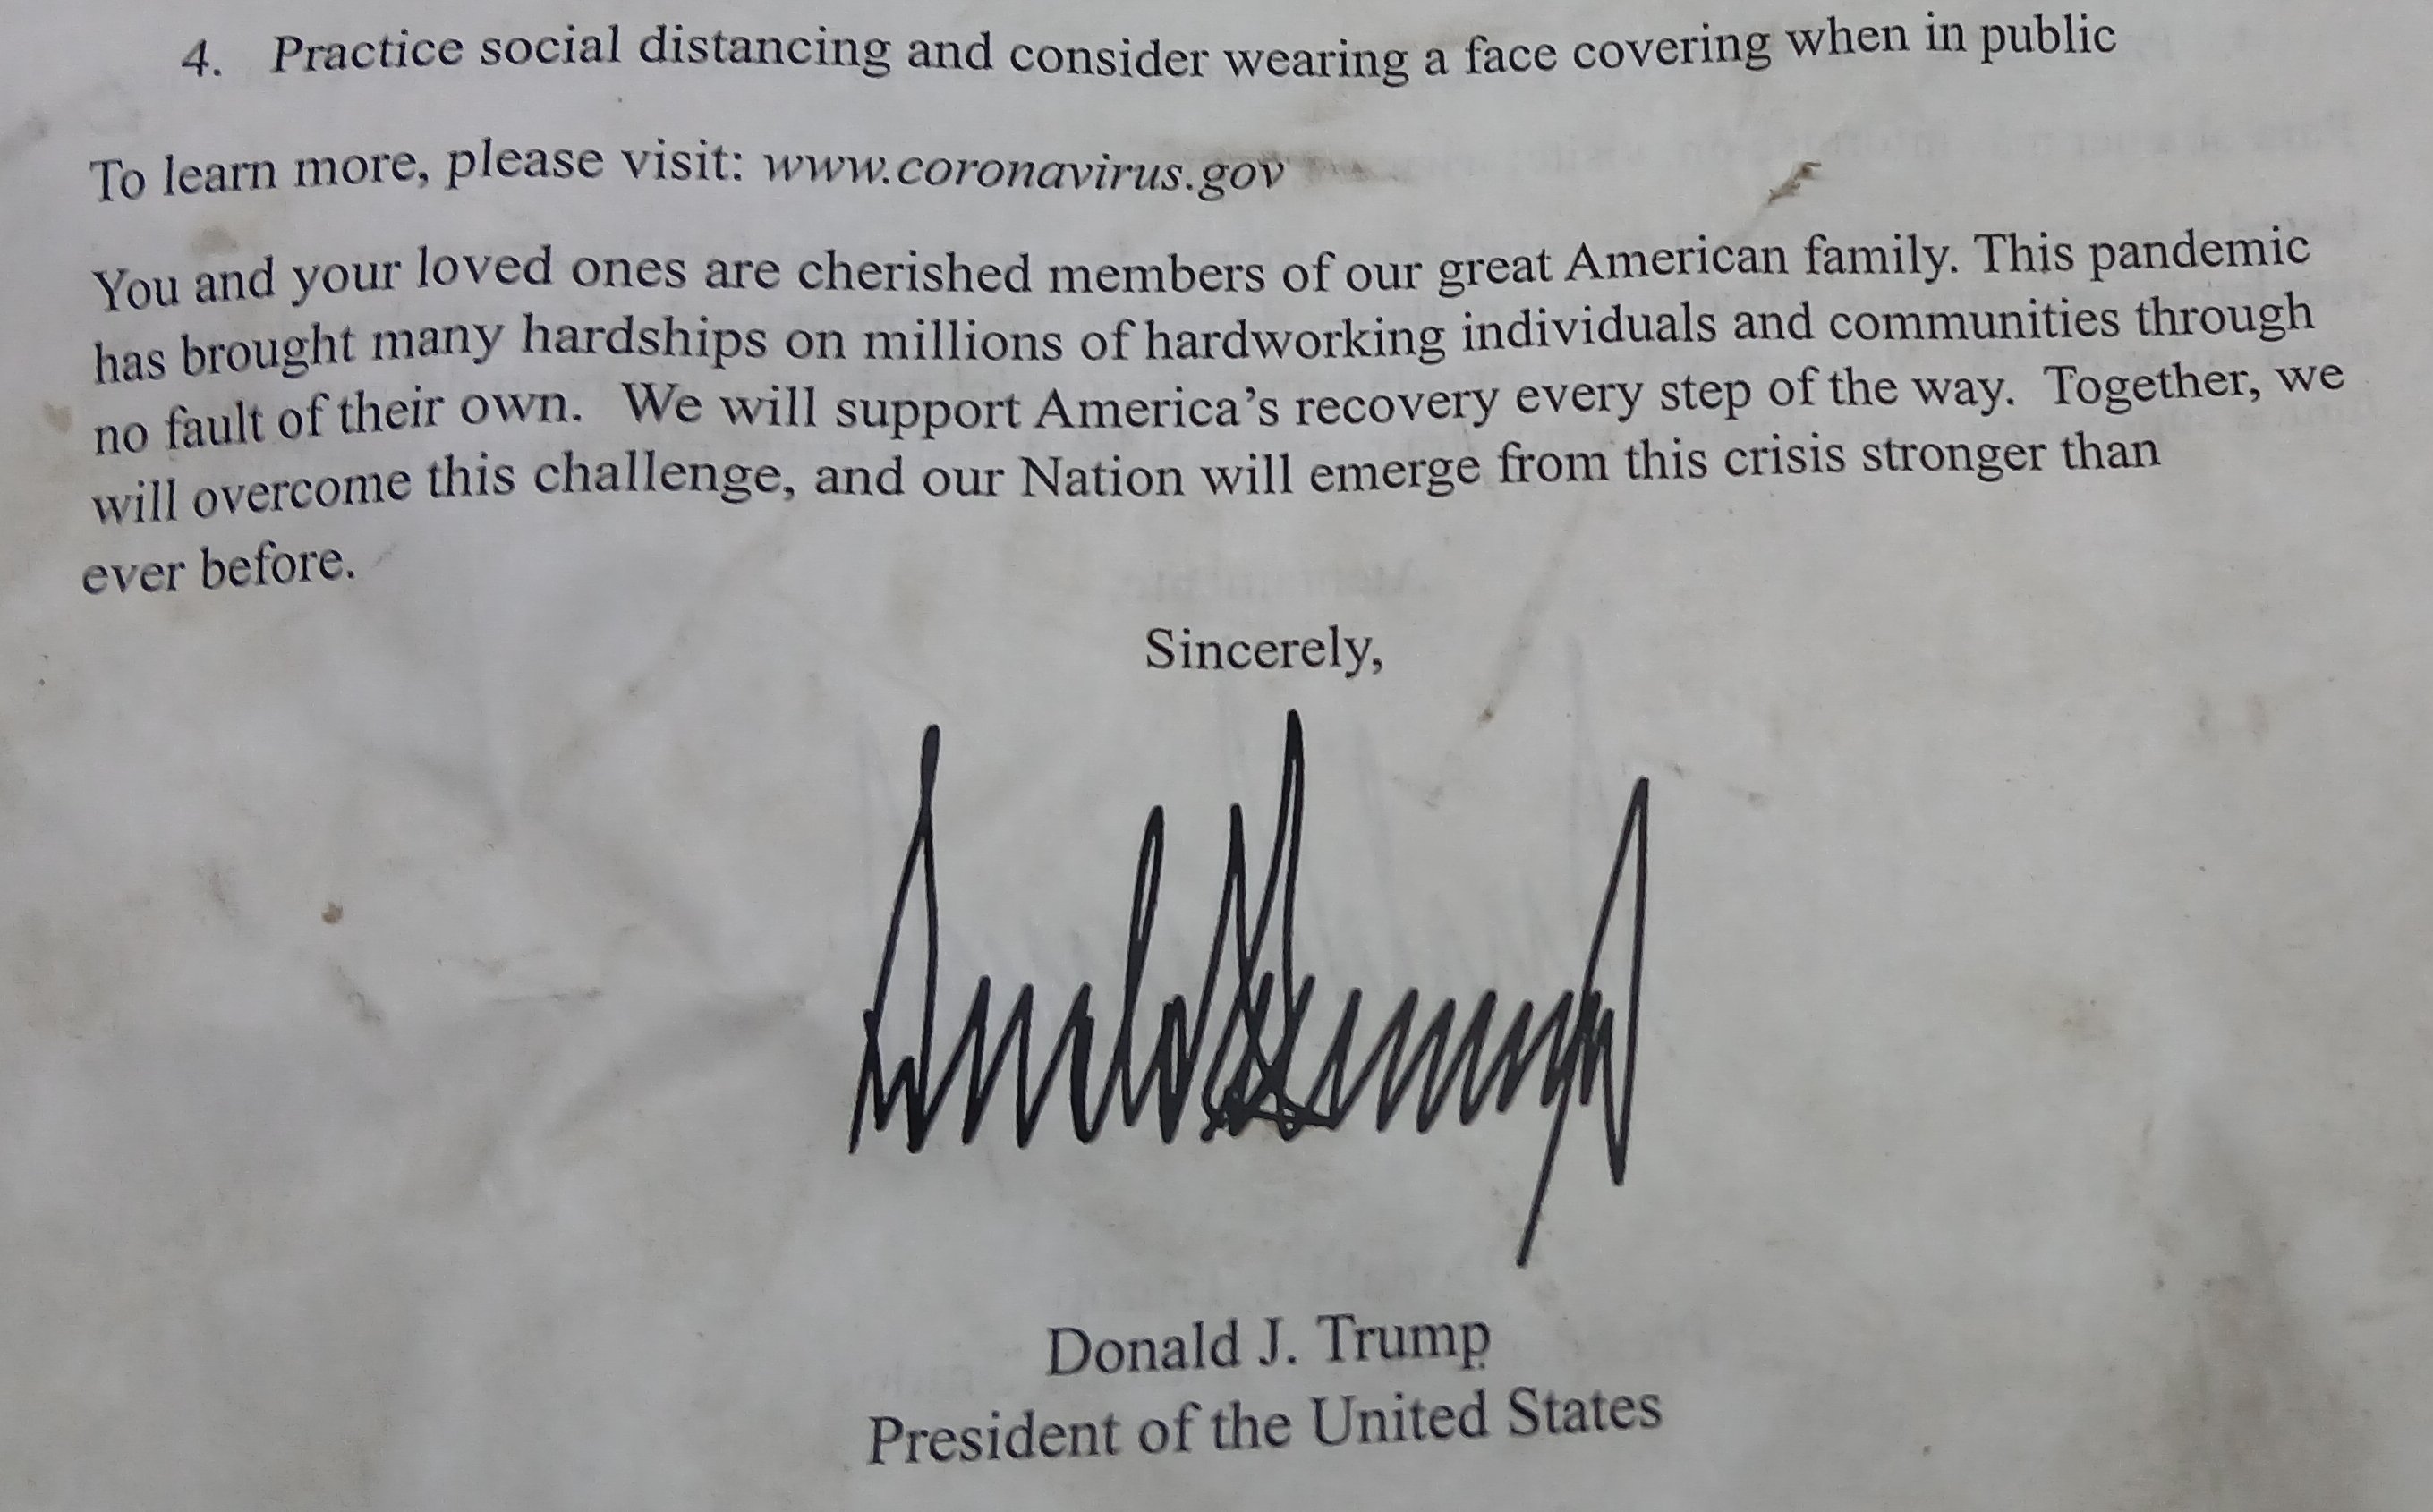 4. Practice social distancing and consider wearing a face covering when in public
To learn more, please visit: www.coronavirus.gov
You and your loved ones are cherished members of our great American family. This pandemic
has brought many hardships on millions of hardworking individuals and communities through
no fault of their own. We will support America's recovery every step of the way. Together, we
will overcome this challenge, and our Nation will emerge from this crisis stronger than
ever before.
Sincerely,
Donald J. Trump
President of the United States